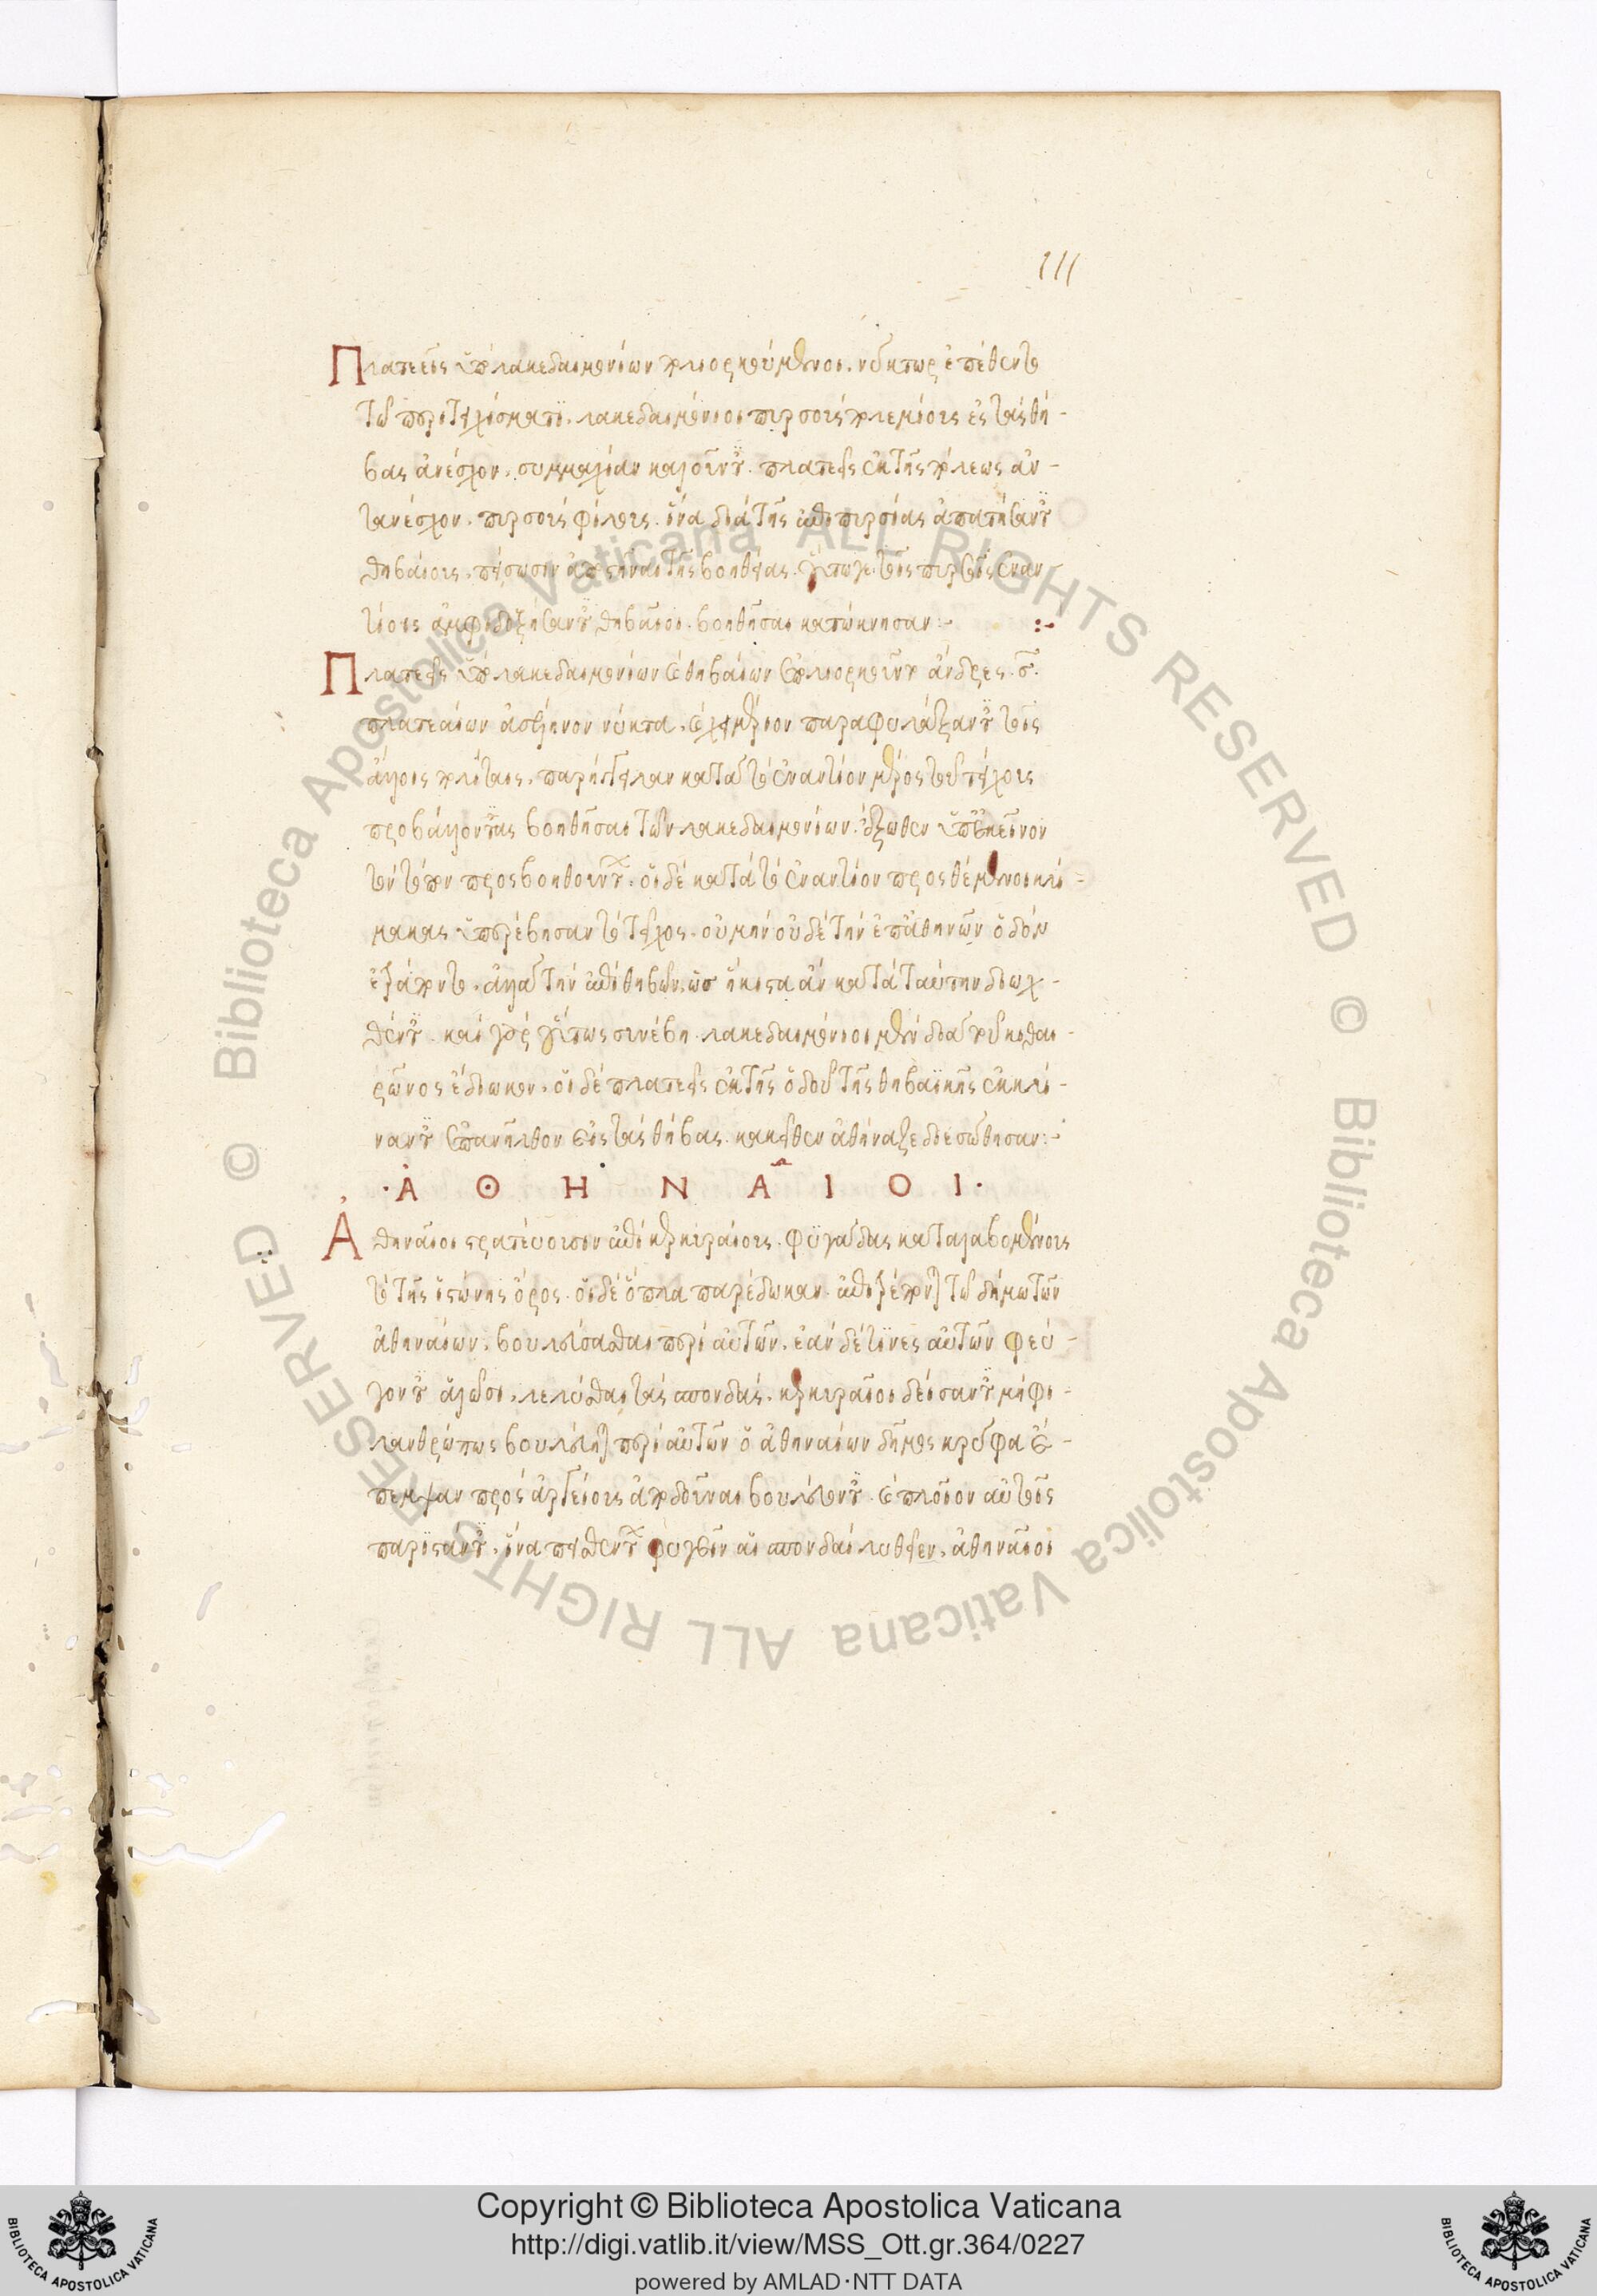 111
Πλαταιεῖς ὑπὸ λακεδαιμονίων πολιορκούμενοι. νύκτωρ ἐπέθεντο
τῶ περιτειχίσματι. λακεδαιμόνιοι πυρσοὺς πολεμίους ἐς τὰς θή-
βας ἀνέσχον. συμμαχίαν καλοῦντες. πλαταιεῖς ἐκ τῆς πόλεως ἀν-
τανέσχον. πυρσοὺς φιλίους. ἵνα διὰ τῆς
θηβαίους. ἀποστῆναι τῆς βοηθείας. τοῖς πυρσοῖς ἐναν-
τίοις ἀμφιδοξήσαντες θηβαῖοι. βοηθῆσαι κατώκνησαν:-
Πλαταιεῖς ὑπὸ λακεδαιμονίων καὶ θηβαίων ἐπολιορκοῦντο ἄνδρες. σ.
πλαταιέων ἀσέληνον νύκτα. καὶ χειμέριον παραφυλάξαντες τοῖς
ἄλλοις πολίταις. παρήγγειλαν κατὰ τὸ ἐναντίον μέρος τοῦ τείχους
προσβάλλοντας βοηθῆσαι τῶν λακεδαιμονίων. ἔξωθεν ἐπ' ἐκεῖνον
τὸν τόπον προσβοηθούντων. οἱ δὲ κατὰ τὸ ἐναντίον προσθέμενοι κλί-
μακας ὑπερέβησαν τὸ τεῖχος. οὐ μὴν οὐδὲ τὴν ἐπ' ἀθηνῶν ὁδὸν
ἐτράποντο. ἀλλὰ τὴν ἐπὶ θηβῶν. ὡς ἥκιστα ἂν κατὰ ταύτην διωχ-
θέντες. καὶ γὰρ οὕτως συνέβη. λακεδαιμόνιοι μὲν διὰ τοῦ κιθαι-
ρῶνος ἐδίωκον. οἱ δὲ πλαταιεῖς ἐκ τῆς ὁδοῦ τῆς θηβαϊκῆς ἐκκλί-
ναντες ἐπανῆλθον εἰς τὰς θήβας. κἀκεῖθεν ἀθήναζε διεσώθησαν:-
ἈΘΗΝΑῖΟΙ
Ἀθηναῖοι στρατεύουσιν ἐπὶ κερκυραίους. φυγάδας καταλαβομένους
τὸ τῆς ἰστώνης ὄρος. οἱ δὲ ὅπλα παρέδωκαν. ἐπιτρέποντες τῶ δήμω τῶν
ἀθηναίων. βουλεύσασθαι περὶ αὐτῶν. ἐὰν δέ τινες αὐτῶν φεύ-
γοντες ἁλῶσι. λελύσθαι τὰς σπονδάς. κερκυραῖοι δείσαντες μὴ φι-
λανθρώπως βουλεύηται περὶ αὐτῶν ὁ ἀθηναίων δῆμος κρύφα ἔ-
πεμψαν πρὸς ἀργείους ἀποδοῦναι βουλεύοντες. καὶ πλοῖον αὐτοῖς
παριστάντες. ἵνα πεισθέντων φυγεῖν αἱ σπονδαὶ λυθεῖεν. ἀθηναῖοι
Copyright © Biblioteca Apostolica Vaticana
http://digi.vatlib.it/view/MSS_Ott.gr.364/0227
powered by AMLAD·NTT DATA
BIBLIOTECA APOSTOLICA VATICANA
BIBLIOTECA APOSTOLICA VATICANA
© Biblioteca Apostolica Vaticana ALL RIGHTS RESERVED
© Biblioteca Apostolica Vaticana ALL RIGHTS RESERVED